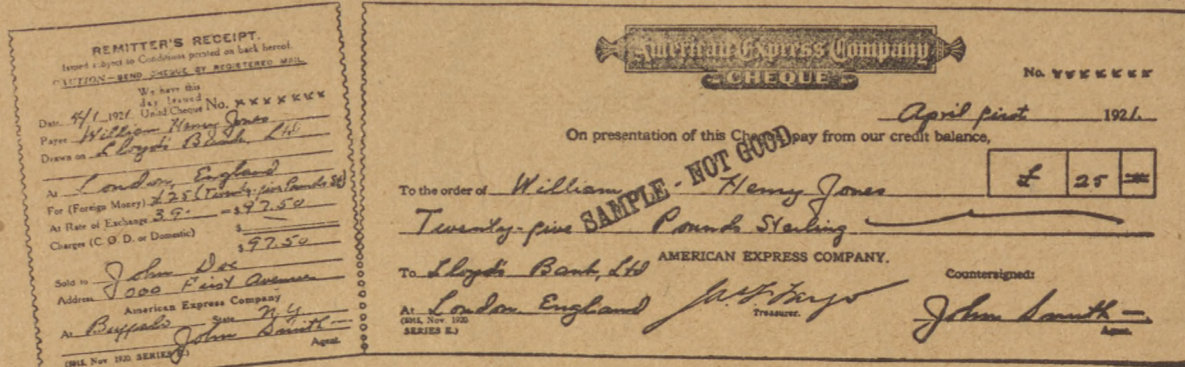 REMITTER'S RECEIPT.
Issued subject to Conditions printed on back hereof.
CAUTION—SEND CHEQUE BY REGISTERED MAIL.
We have this
day Issued
Date 4/1 1921 Unlnd Cheque No. xxxxxxx
Payee William Henry Jones
Drawn on Lloyds Bank, Ltd
At London, England
For (Foreign Money) £25 (Twenty-five Pounds St)
At Rate of Exchange 3.90 = $97.50
Charges (C.O.D. or Domestic) $
$97.50
Sold to John Doe
Address 7000 First Avenue
American Express Company
At Buffalo State N.Y.
John Smith —
Agent.
(5041, Nov. 1920. SERIES E.)
American Express Company
CHEQUE
No. xxxxxxx
April first 1921.
On presentation of this Cheque pay from our credit balance,
To the order of William Henry Jones £ 25
SAMPLE - NOT GOOD
Twenty-five Pounds Sterling
AMERICAN EXPRESS COMPANY.
To Lloyds Bank, Ltd
Countersigned:
At London England
Treasurer.
John Smith —
Agent.
Nov. 1920.
SERIES E.)